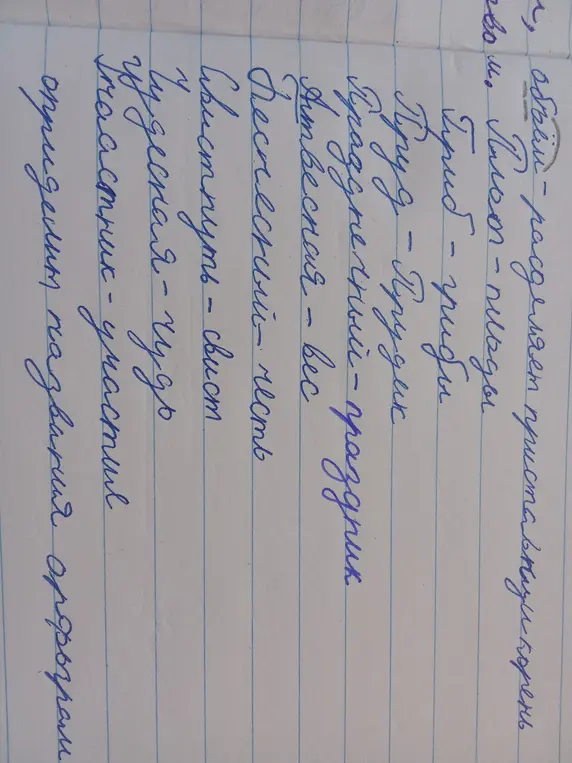 объём - разделяет приставку и корень
м. Плот - плоды
Гриб - грибы
Пруд - Прудик
Празднечный - праздник
Атвесная - вес
Песчесный - честь
Свистнуть - свист
Чудесная - чудо
Участник - участия
орриделит названия орфограм